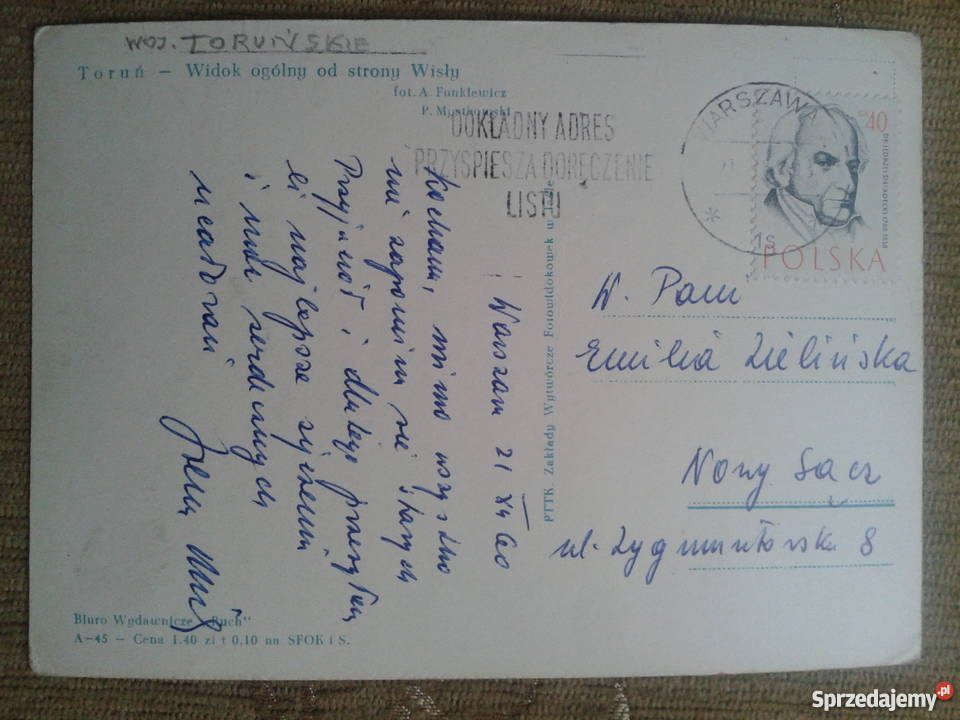 WOJ. TORUŃSKIE
Toruń – Widok ogólny od strony Wisły
fot. A. Funkiewicz
P. Mystkowski
DOKŁADNY ADRES
PRZYSPIESZA DORĘCZENIE
LISTU
WARSZAWA
40
POLSKA
Warszawa 21 XII 60
Kochani, mimo wszystko
nie zapomina się starych
Przyjaciół i dlatego przesyłam
ci najlepsze życzenia
i moc serdecznych
ucałowań
PTTK Zakłady Wytwórcze Fotowidokówek w
W. Pani
Emilia Zielińska
Nowy Sącz
ul. Zygmuntowska 8
Biuro Wydawnicze „Ruch"
A-45 – Cena 1.40 zł + 0.10 na SFOK i S.
Sprzedajemy.pl